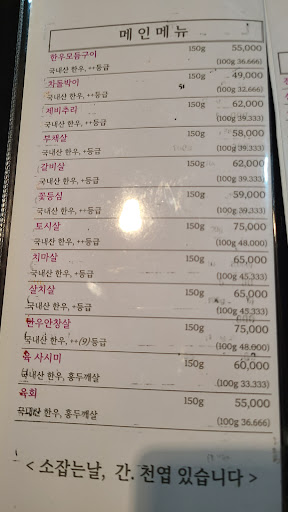 메인메뉴
한우모듬구이 150g 55,000
국내산 한우, ++등급 (100g 36.666)
차돌박이 150g 49,000
국내산 한우, ++등급 (100g 32.666)
제비추리 150g 62,000
국내산 한우, ++등급 (100g 39.333)
부채살 150g 58,000
국내산 한우, +등급 (100g 39.333)
갈비살 150g 62,000
국내산 한우, ++등급 (100g 39.333)
꽃등심 150g 59,000
국내산 한우, ++등급 (100g 39.333)
토시살 150g 75,000
국내산 한우, ++등급 (100g 48.000)
치마살 150g 65,000
국내산 한우, +등급 (100g 45.333)
살치살 150g 65,000
국내산 한우, +등급 (100g 45.333)
한우안창살 150g 75,000
국내산 한우, ++(9)등급 (100g 48.000)
육 사시미 150g 60,000
국내산 한우, 홍두깨살 (100g 33.333)
육회 150g 55,000
국내산 한우, 홍두깨살 (100g 36.666)
< 소잡는날, 간. 천엽 있습니다 >